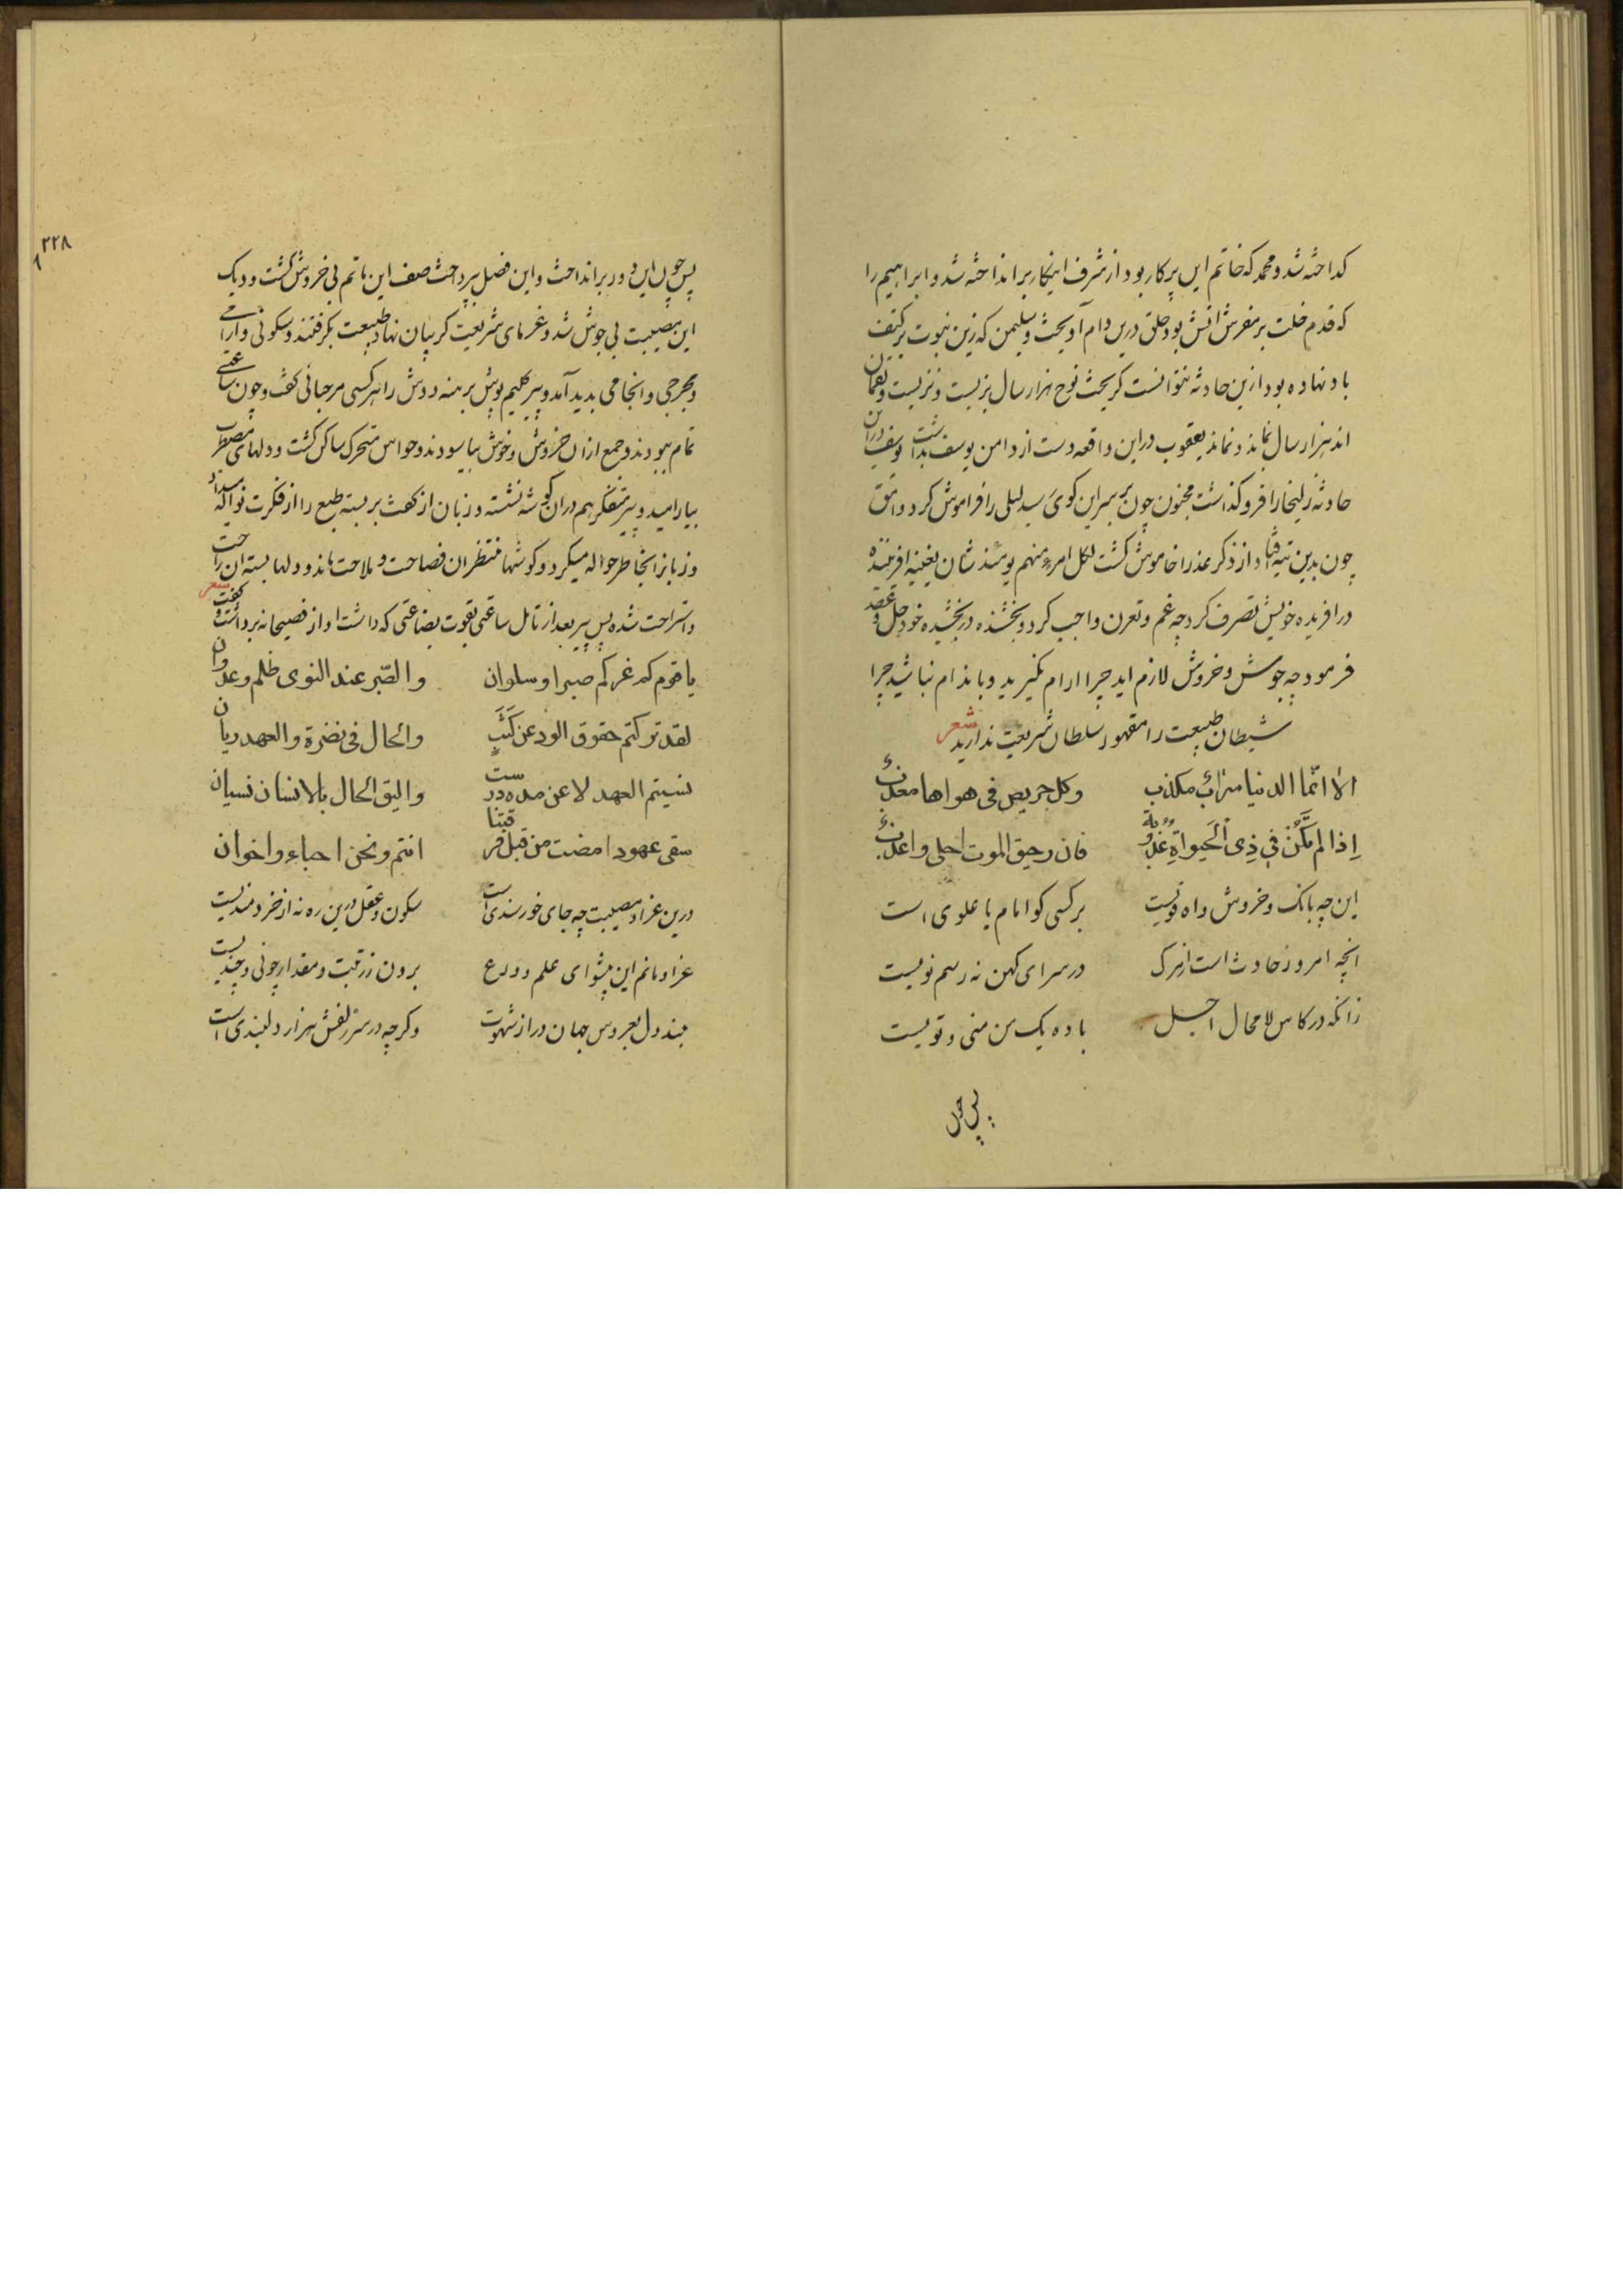 كداخته شد و محمد كه خاتم این پركار بود از شرف اینكار برانداخته شد و ابراهیم را
كه قدم خلت بر مفرش انس بود حلق درین دام آویخت و سلیمن كه زین نبوت بر كتف
باد نهاده بود ازین حادثه نتوانست كریخت نوح هزار سال بزیست و نزیست و لقمان
اند هزار سال بماند و نماند یعقوب در این واقعه دست از دامن یوسف بداشت و یوسف دران
حادثه زلیخا را فرو كذاشت مجنون چون بر سر این كوی رسید لیلی را فراموش كرد و وامق
چون بدین تیه افتاد از ذكر عذرا خاموش كشت لكل امرء منهم یومئذ شان یغنیه افریننده
در افریده خویش تصرف كرد چه غم و تعرن واجب كرد و بخشنده در بخشیده خود حل و عقد
فرمود چه جوش و خروش لازم اید چرا ارام نكیرید و باندام نباشید چرا
شیطان طبیعت را مقهور سلطان شریعت ندارید شعر
الا انما الدنیا سراب مكذب وكل حریص فی هواها معذب
اذا لم تكن فی ذی الحیواة عذوبة فان رحیق الموت احلی واعذب
این چه بانك و خروش و اه قویست بر كسی كو امام یا علوی است
انچه امروز حادث است از مرك در سرای كهن نه رسم نویست
زانكه در كاس لا محال اجل باده یك من منی و تویست
پس چون
۲۲۸
پس چون این دور برانداخت و این فصل بپرداخت صف این ماتم بی خروش كشت و دیك
این مصیبت بی جوش شد و غرمای شریعت كریبان نهاد طبیعت بكرفتند و سكونی و ارامشی
و مخرجی و انجامی بدید آمد و پیر كلیم پوش برهنه دوش را هر كسی مرحبائی كفت و چون ساعتی
تمام ببودند و جمع از ان خروش و جوش بیاسودند و حواس متحرك ساكن كشت و دلهای مضطرب
بیارامید و پیر متفكر هم دران كوشه نشسته و زبان از كفت بر بسته طبع را از فكرت نواله میداد
و زبانرا بخاطر حواله میكرد و كوشها منتظر ان فصاحت و ملاحت ماند و دلها بسته ان راحت
و استراحت شده پس پیر بعد از تامل ساعتی بقوت بضاعتی كه داشت اواز فصیحانه برداشت و كفت شعر
یا قوم كم غركم صبرا وسلوان والصبر عند النوی ظلم وعدوان
لقد تركتم حقوق الود عن كثب والحال فی نضرة والعهد ریان
نسیتم العهد لا عن مدة درست والیق الحال بالانسان نسیان
سقی عهودا مضت من قبل فرقتنا انتم ونحن احباء واخوان
درین عزا و مصیبت چه جای خورسندی است سكون و عقل درین ره نه از خردمندیست
عزا و ماتم این پیشوای علم و ورع برون ز رتبت و مقدار چونی و چندیست
مبند دل بعروس جهان دراز شهوت وكرچه در سر زلفش هزار دلبندی است